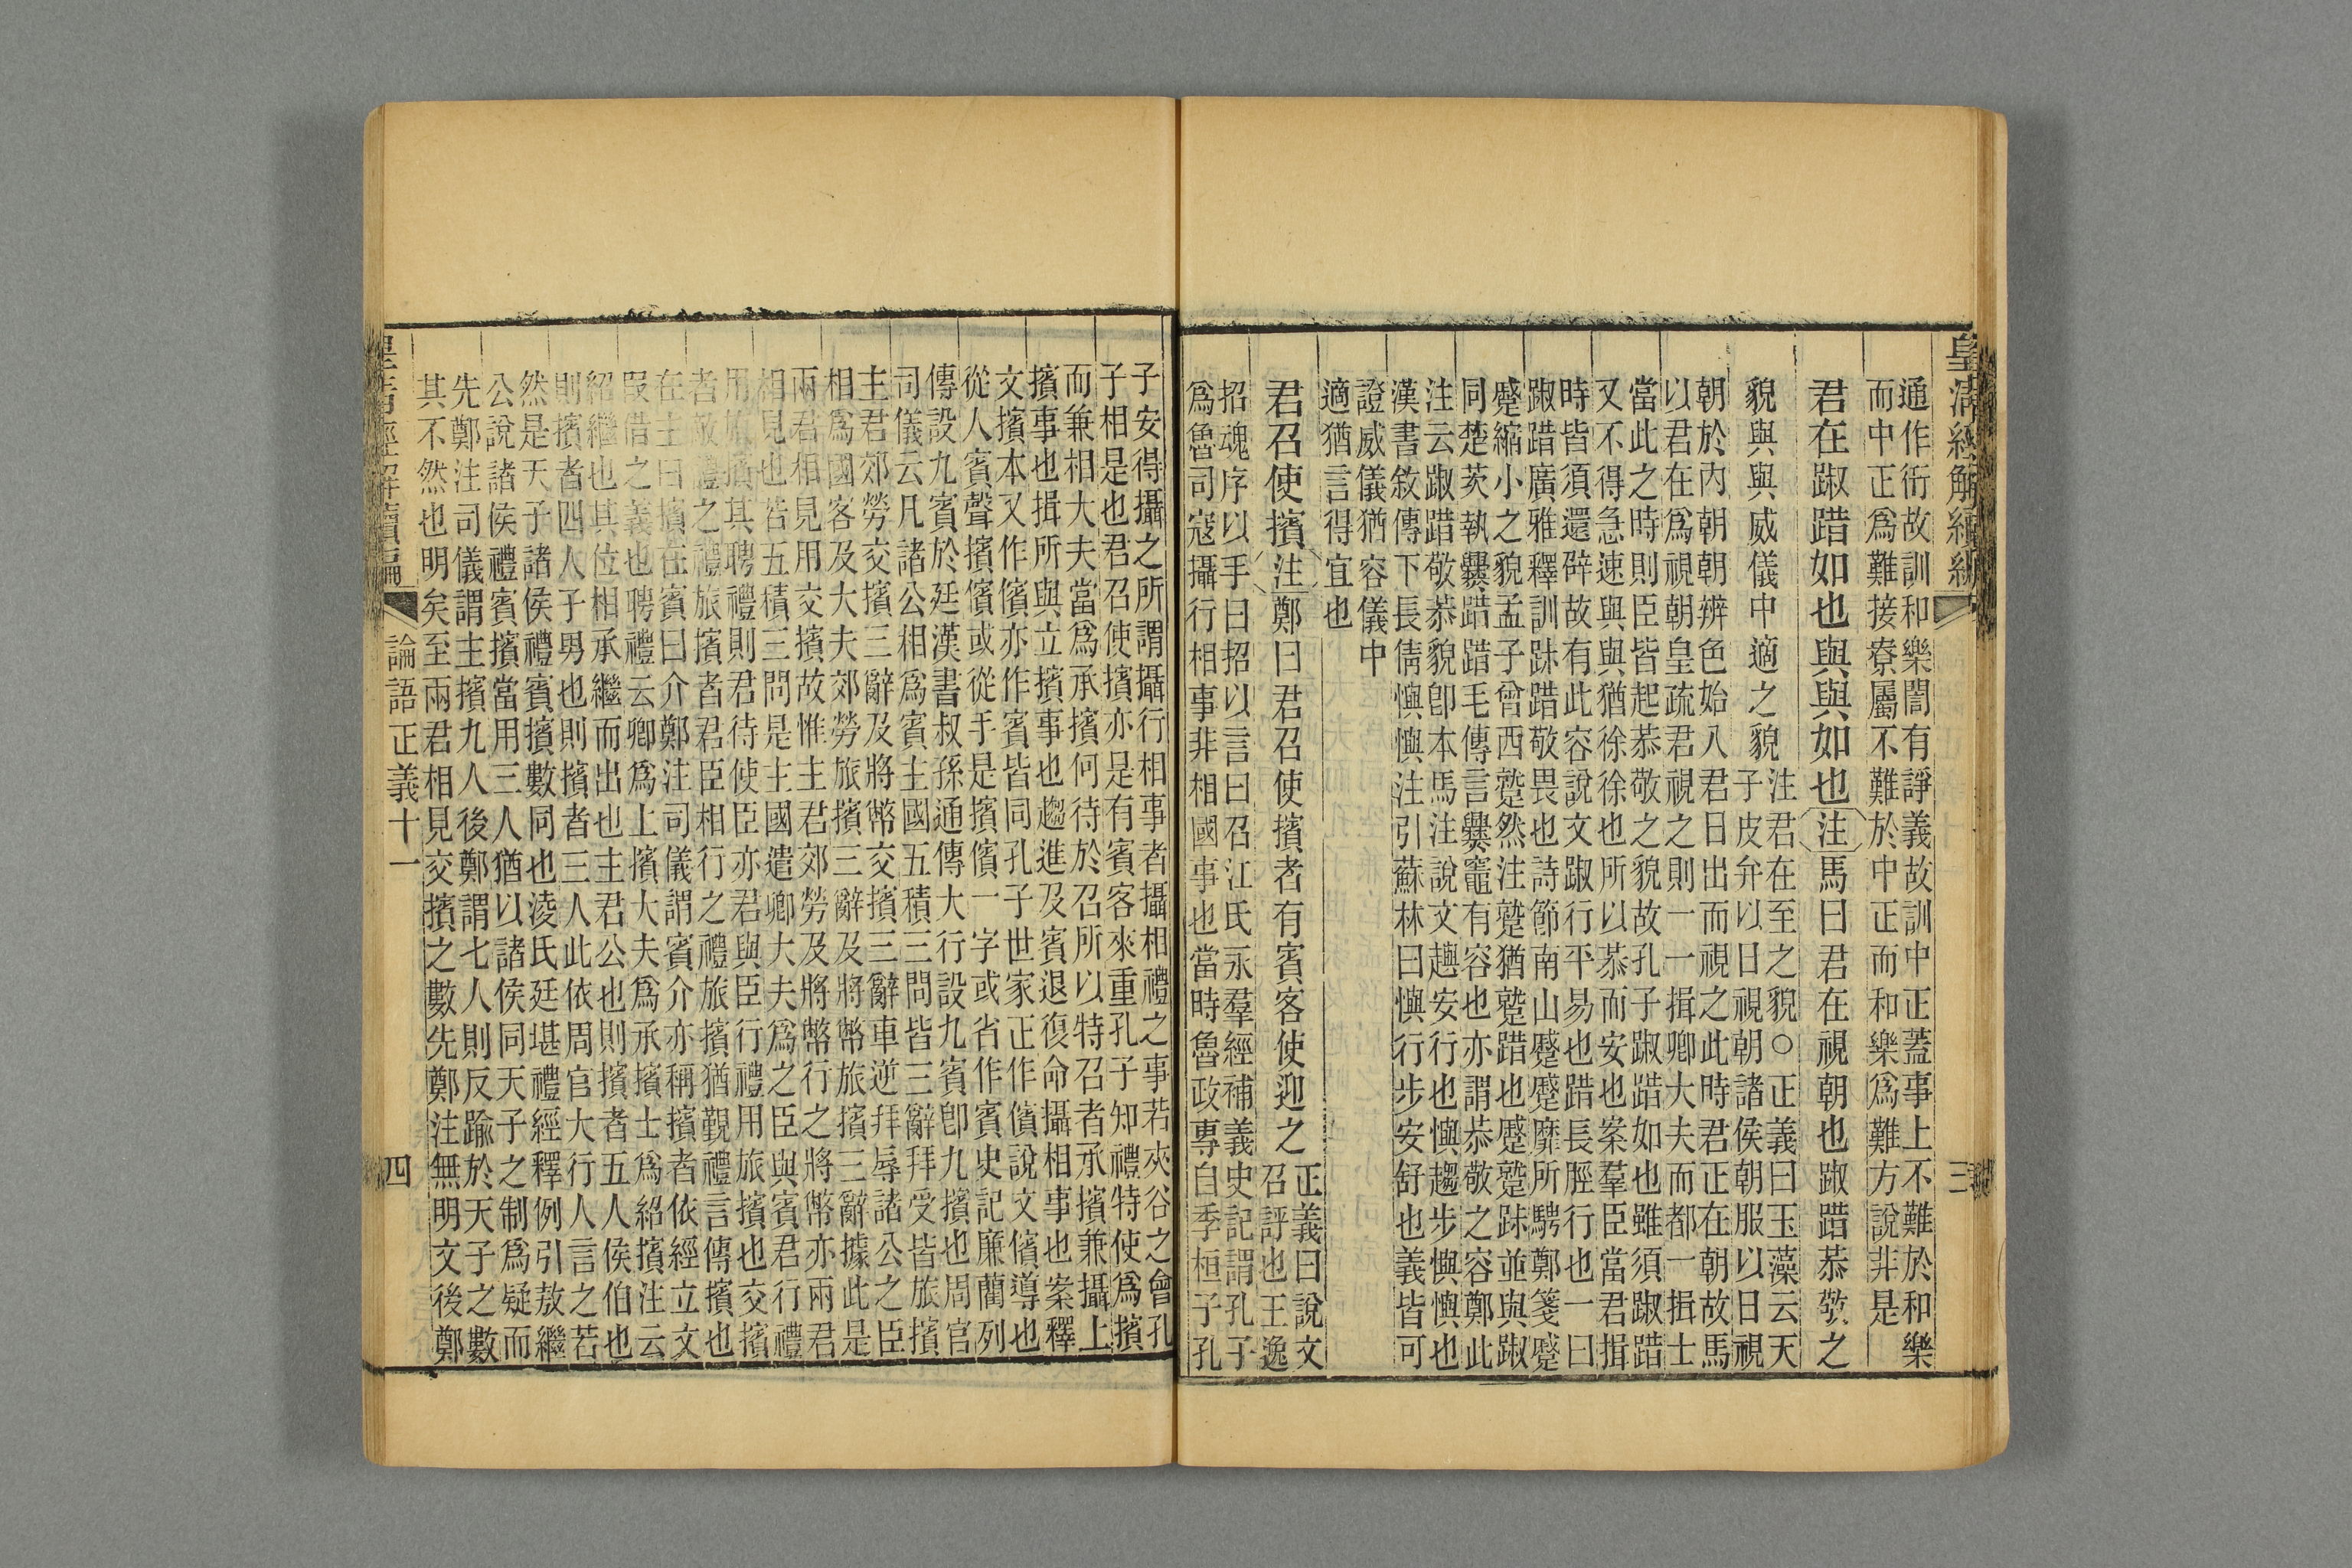 皇清經解續編
三
通作衎故訓和樂誾有諍義故訓中正蓋事上不難於和樂
而中正爲難接寮屬不難於中正而和樂爲難方說非是
君在踧踖如也與與如也注馬曰君在視朝也踧踖恭敬之
貌與與威儀中適之貌
注君在至之貌○正義曰玉藻云天
子皮弁以日視朝諸侯朝服以日視
朝於內朝朝辨色始入君日出而視之此時君正在朝故馬
以君在爲視朝皇疏君視之則一一揖卿大夫而都一揖士
當此之時則臣皆起恭敬之貌故孔子踧踖如也雖須踧踖
又不得急速與與猶徐徐也所以恭而安也案羣臣當君揖
時皆須還辟故有此容說文踧行平易也踖長脛行也一曰
踧踖廣雅釋訓踧踖敬畏也詩節南山蹙蹙靡所騁鄭箋蹙
蹙縮小之貌孟子曾西蹵然注蹵猶蹵踖也蹙蹵踧並與踧
同楚茨執爨踖踖毛傳言爨竈有容也亦謂恭敬之容鄭此
注云踧踖敬恭貌卽本馬注說文趩安行也懙趨步懙懙也
漢書敘傳下長倩懙懙注引蘇林曰懙行步安舒也義皆可
證威儀猶容儀中
適猶言得宜也
君召使擯注鄭曰君召使擯者有賓客使迎之
正義曰說文
召評也王逸
招魂序以手曰招以言曰召江氏永羣經補義史記謂孔子
爲魯司寇攝行相事非相國事也當時魯政專自季桓子孔
子安得攝之所謂攝行相事者攝相禮之事若夾谷之會孔
子相是也君召使擯亦是有賓客來重孔子知禮特使爲擯
而兼相大夫當爲承擯何待於召所以特召者承擯兼攝上
擯事也揖所與立擯事也趨進及賓退復命攝相事也案釋
文擯本又作儐亦作賓皆同孔子世家正作儐說文儐導也
從人賓聲擯儐或從手是擯儐一字或省作賓史記廉藺列
傳設九賓於廷漢書叔孫通傳大行設九賓卽九擯也周官
司儀云凡諸公相爲賓主國五積三問皆三辭拜受皆旅擯
主君郊勞交擯三辭及將幣交擯三辭車逆拜辱諸公之臣
相爲國客及大夫郊勞旅擯三辭及將幣旅擯三辭據此是
兩君相見用交擯故惟主君郊勞及將幣行之將幣亦兩君
相見也若五積三問是主國遣卿大夫爲之臣與賓君行禮
用旅擯其聘禮則君待使臣亦君與臣行禮用旅擯也交擯
者敵禮之禮旅擯者君臣相行之禮旅擯猶覲禮言傳擯也
在主曰擯在賓曰介鄭注司儀謂賓介亦稱擯者依經立文
叚借之義也聘禮云卿爲上擯大夫爲承擯士爲紹擯注云
紹繼也其位相承繼而出也主君公也則擯者五人侯伯也
則擯者四人子男也則擯者三人此依周官大行人言之若
然是天子諸侯禮賓擯數同也淩氏廷堪禮經釋例引敖繼
公說諸侯禮賓擯當用三人猶以諸侯同天子之制爲疑而
先鄭注司儀謂主擯九人後鄭謂七人則反踰於天子之數
其不然也明矣至兩君相見交擯之數先鄭注無明文後鄭
皇清經解續編
論語正義十一
四